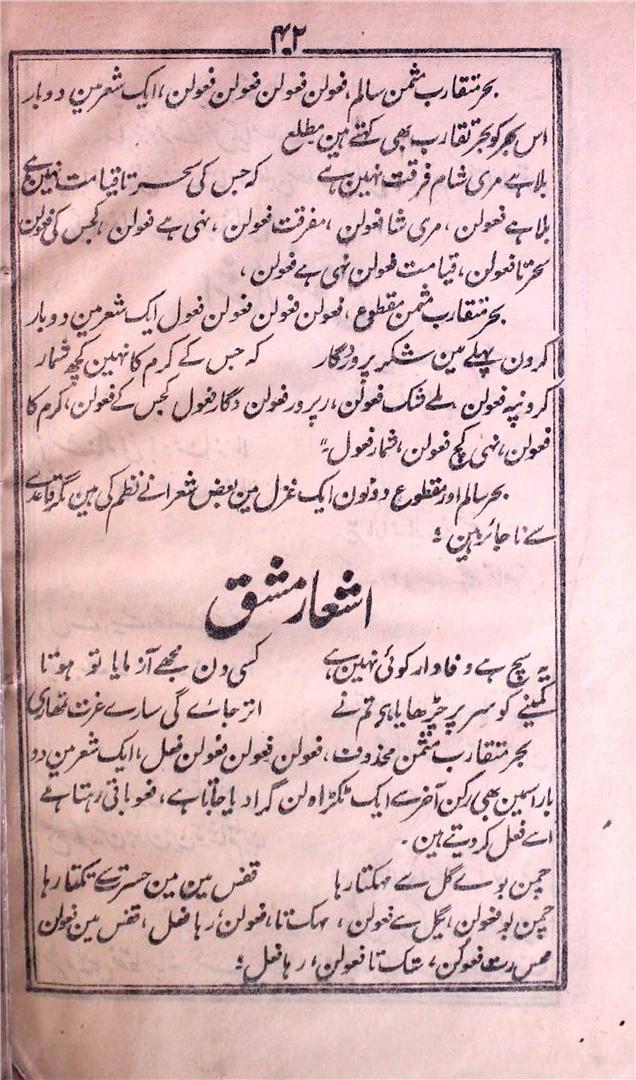 ۴۲
بحر متقارب مثمن سالم، فعولن فعولن فعولن فعولن، ایک شعر مین دوبار
اس بحر کو بحر تقارب بھی کہتے ہین مطلع
بلا ہے مری شام فرقت نہین ہے کہ جس کی سحر تا قیامت نہین ہے
بلا ہے فعولن، مری شا فعولن، مفرقت فعولن، نہی ہے فعولن، کجس کی فعولن
سحر تا فعولن، قیامت فعولن نہی ہے فعولن،
بحر متقارب مثمن مقطوع، فعولن فعولن فعولن فعول ایک شعر مین دوبار
کرون پہلے مین شکر پروردگار کہ جس کے کرم کا نہین کچھ شمار
کرو نپہ فعولن، لمے شک فعولن، رپرور فعولن دگار فعول کجس کے فعولن، کرم کا
فعولن، نہی کچ فعولن، شمار فعول۔
بحر سالم اور مقطوع دونون ایک غزل مین بعض شعرا نے نظم کی ہین مگر قاعدے
سے ناجائز ہین ؛
اشعار مشق
یہ سچ ہے وفادار کوئی نہین ہے کسی دن مجھے آزمایا تو ہوتا
کمینے کو سر پر چڑھایا ہی تم نے اتر جائے گی سارے عزت تمھاری
بحر متقارب مثمن محذوف، فعولن فعولن فعولن فعل، ایک شعر مین دو
بار اسمین بھی رکن آخر سے ایک ٹکڑا ہ لن گرا دیا جاتا ہے، فعو باقی رہتا ہے
اسے فعل کر دیتے ہین۔
چمن بوے گل سے مہکتا رہا قفس مین مین حسرت سے تکتا رہا
چمن بو فعولن، یگل سے فعولن، مہک تا، فعولن، رہا فعل، قفس مین فعولن
محس رت فعولن، ستک تا فعولن، رہا فعل ؛